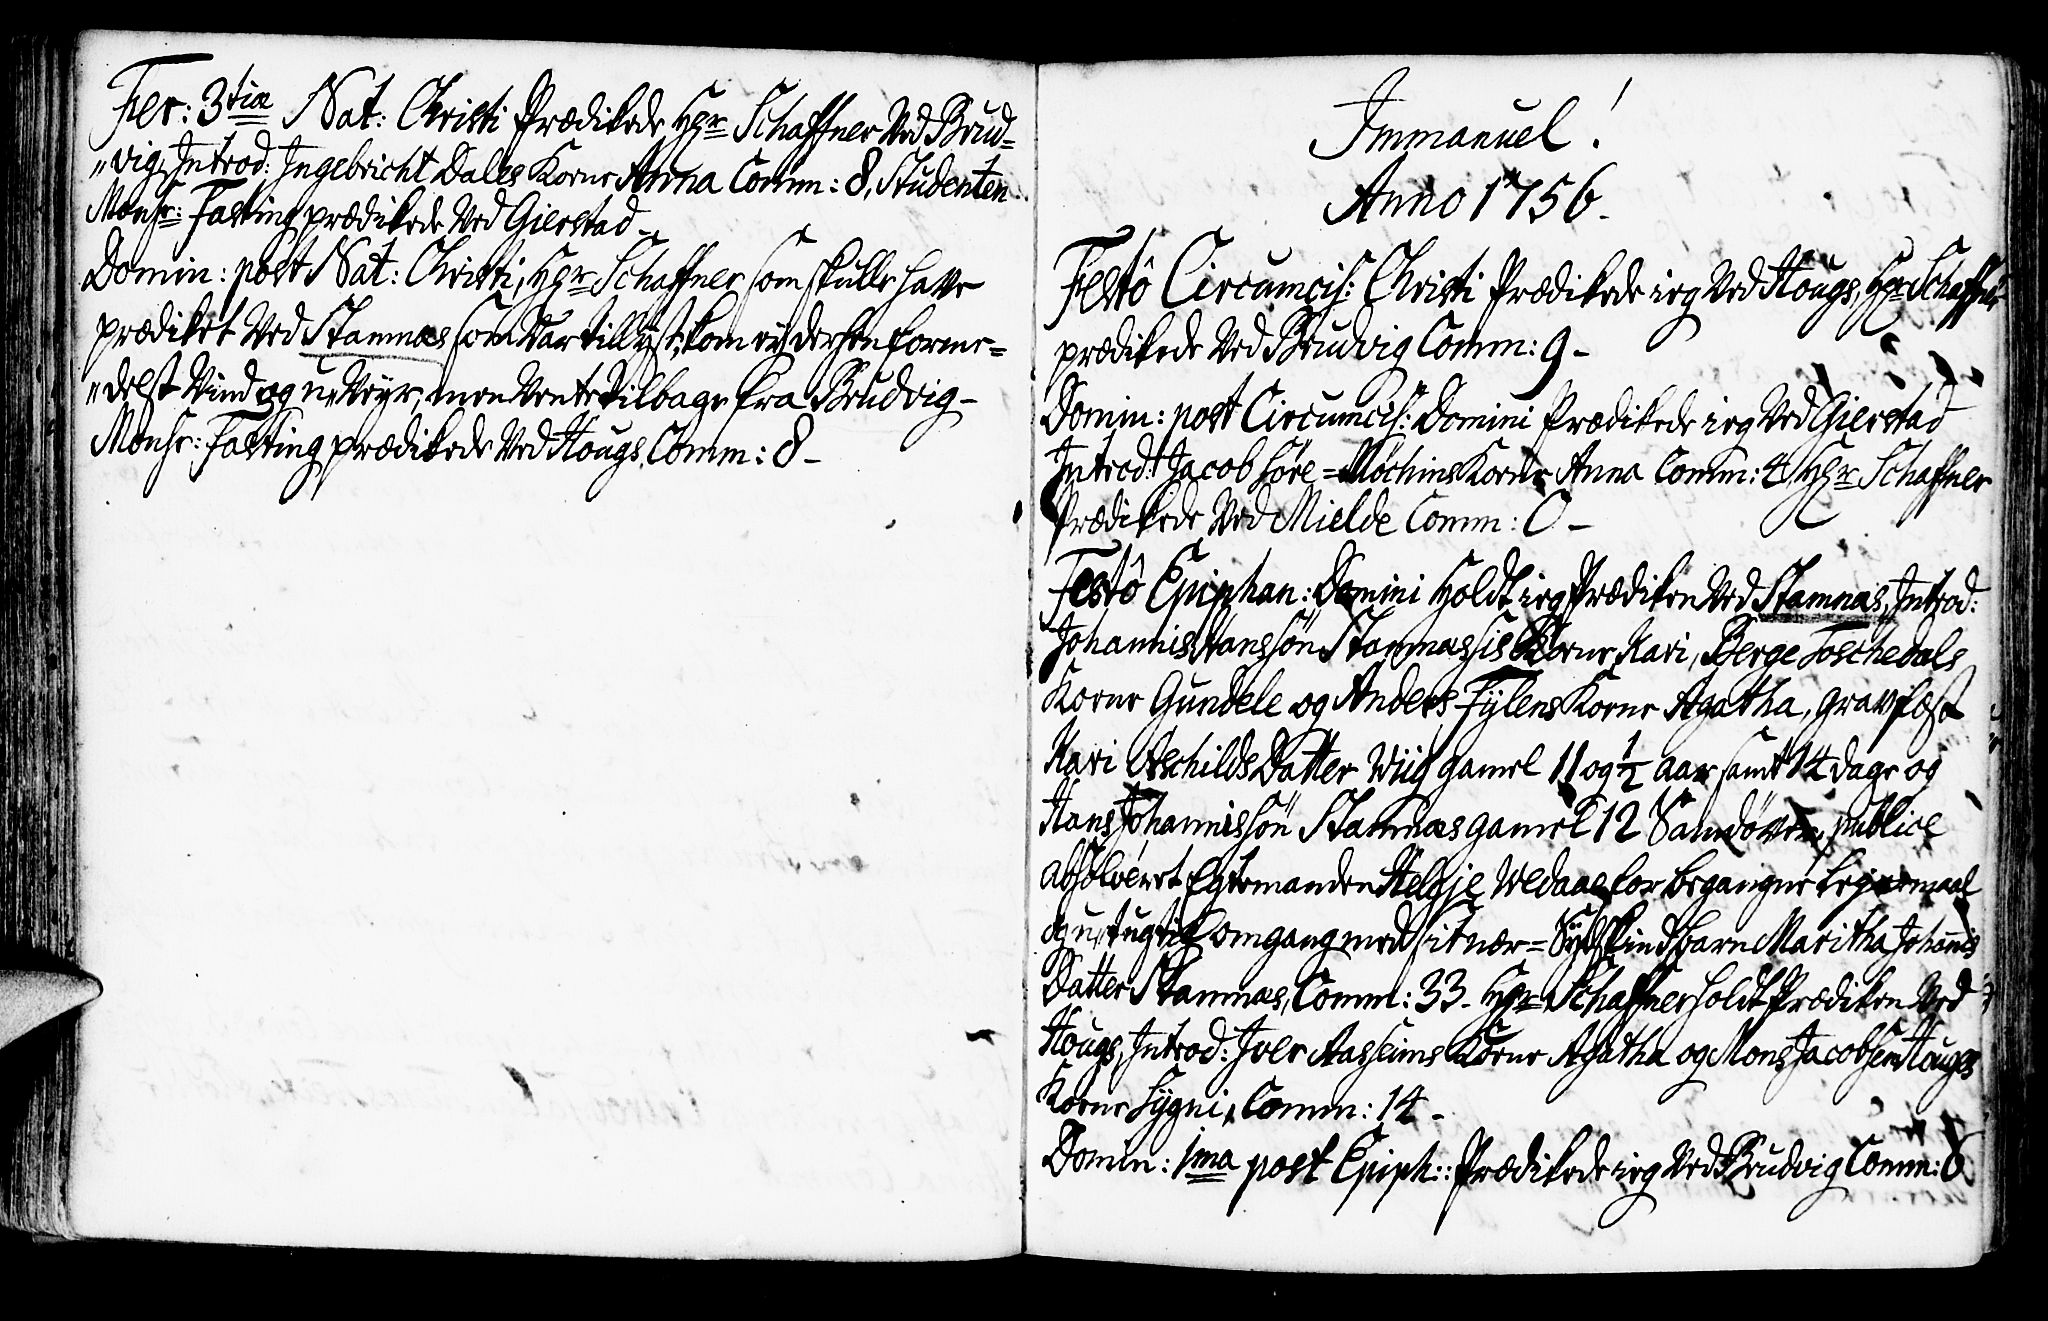 Fer: 3tiæ Nat: Christi Prædikede Hgr Schaffner Ved Brud=
"vig, Introd: Ingebricht Dales Kone Anna Comm: 8, Studenten
Monsr: Fasting prædikede Ved Gierstad_
Domin: post Nat: Christi, Hgr Schaffner som skulle have
prædiket Ved Stamnæs som var tillyst, kom ey derhen forme=
"delst Vind og u-Veyr, men Vente tilbage fra Brudvig_
Monsr: Fasting prædikede Ved Hougs, Comm: 8_
Immanuel!
Anno 1756.
Festô Circumcis: Christi Prædikede ieg Ved Hougs, Hgr Schaffner
prædikede Ved Brudvig Comm: 9_
Domin: post Circumcis: Domini Prædikede ieg Ved Gierstad
Introd: Jacob søre=Møchins Kone Anna Comm: 4, Hgr Schaffner
Prædikede Ved Mielde Comm: 0_
Festô Epiphan: Domini Holdt ieg Prædiken Ved Stamnæs, Introd:
Johannis Hanssøn Stamnæs sis Kone, Kari, Berge Toschedals
Kone Gundele og Anders Fylens Kone Agatha, gravfæst
Kari Aschilds Datter Wiig gamel 11 og ½ aar samt 14 dage og
Hans Johannissøn Stamnæs gamel 12 publice
absolveret Egtemanden Helgje Wedaae for begangne Leyermaal
og u-tugtig omgang med sit nær=Sydskindbarn Maritha Johannis
Datter Stamnæs, Comm: 33_ Hgr Schaffner holdt Prædiken Ved
Hougs, Introd: Iver Aasheims Kone Agatha og Mons Jacobsen Hougs
Kone Sygni, Comm: 14_
Domin: 1ma post Epiph:: Prædikede ieg Ved Brudvig Comm: 8